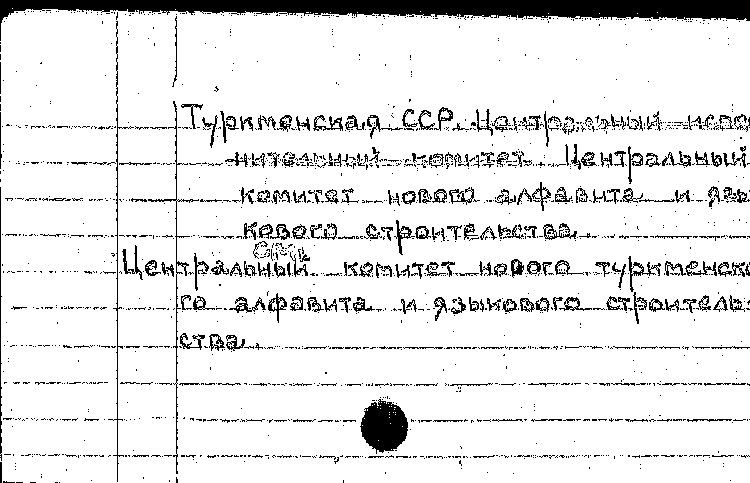 Туркменская ССР. Центральный испол
нительный комитет. Центральный
комитет нового алфавита и язы
кового строительства.
см.
Центральный комитет нового туркменско
го алфавита и языкового строитель
ства.